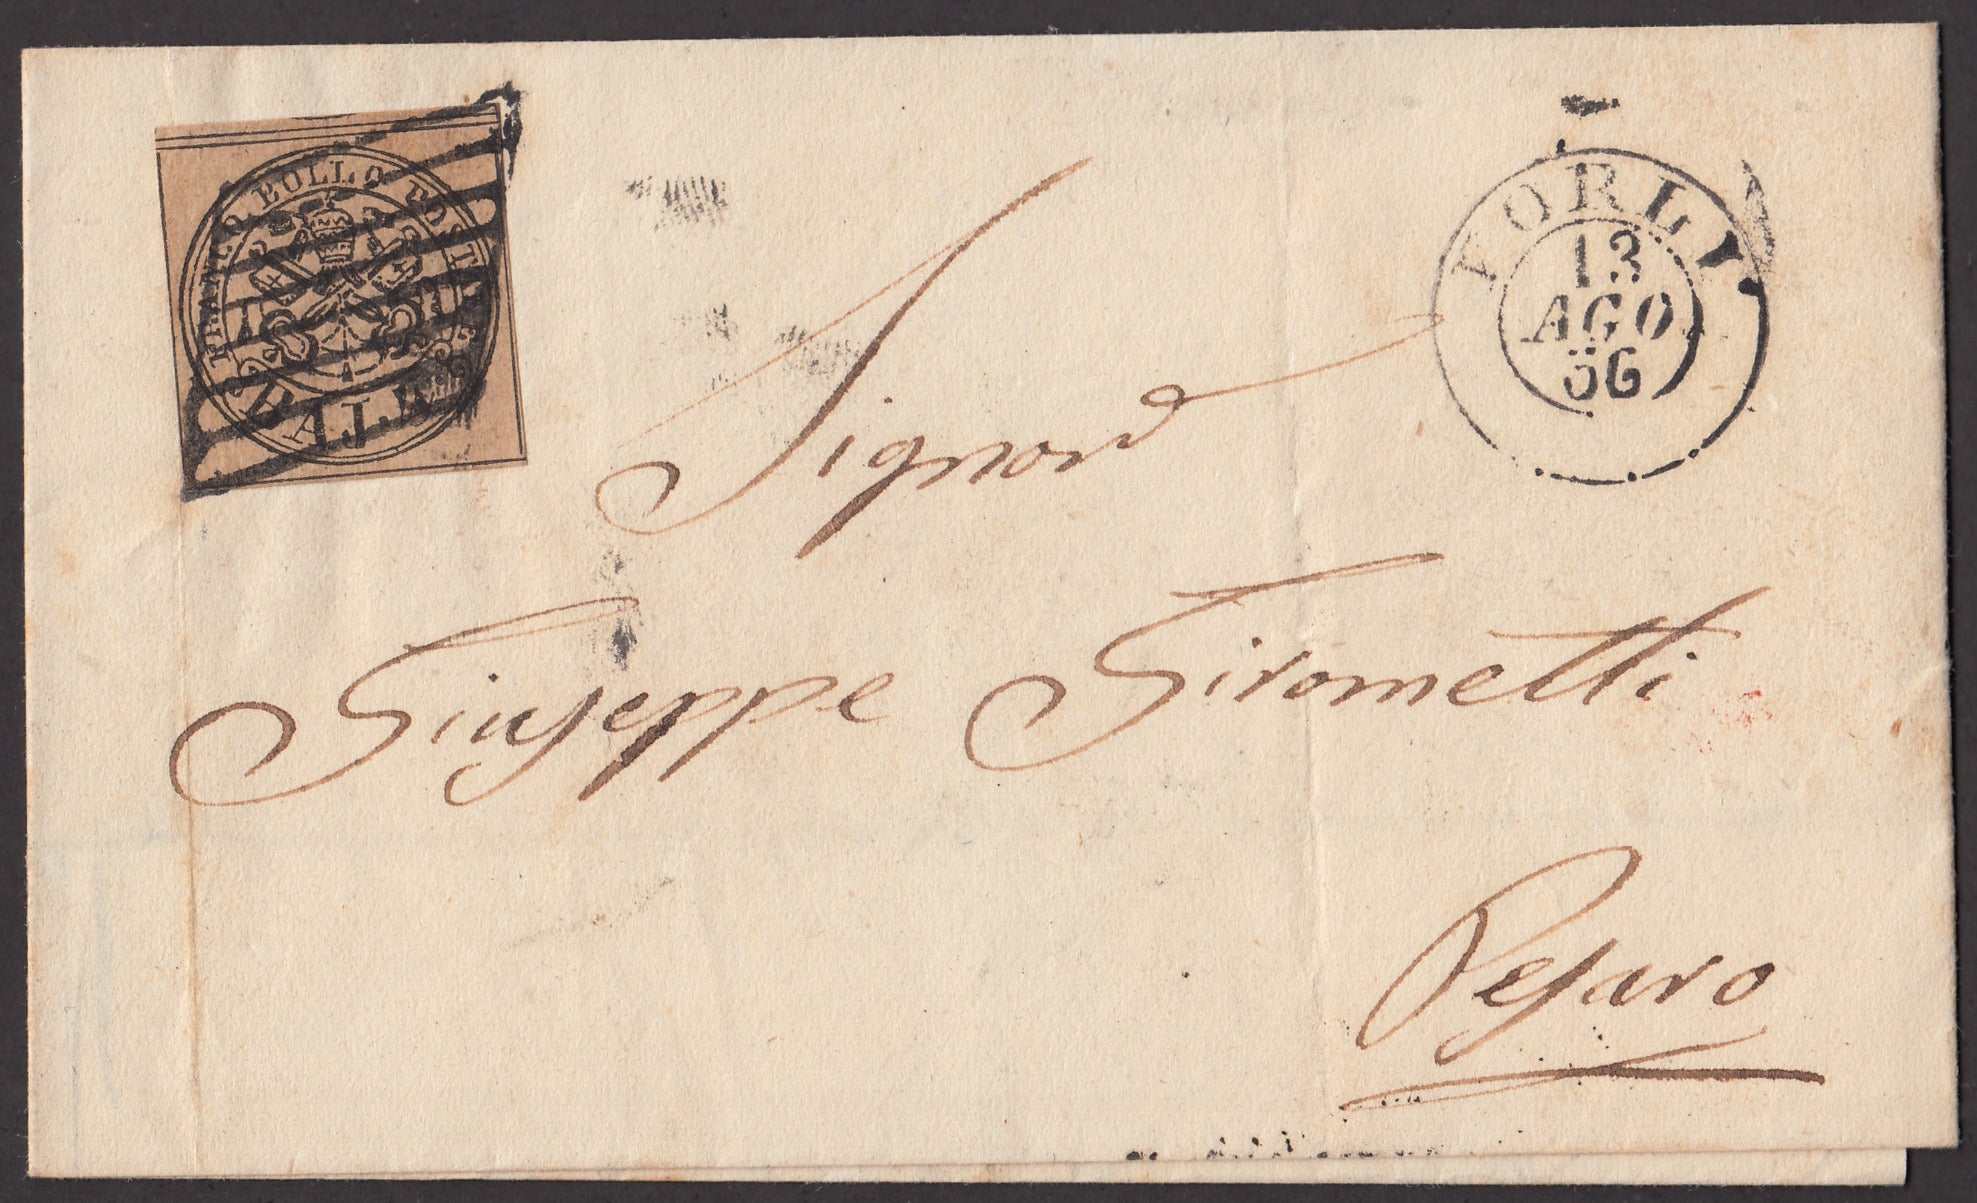 FRANCO BOLLO POSTALE
BAJ. 3
FORLY
13
AGO
56
Signor
Giuseppe Girometti
Pesaro